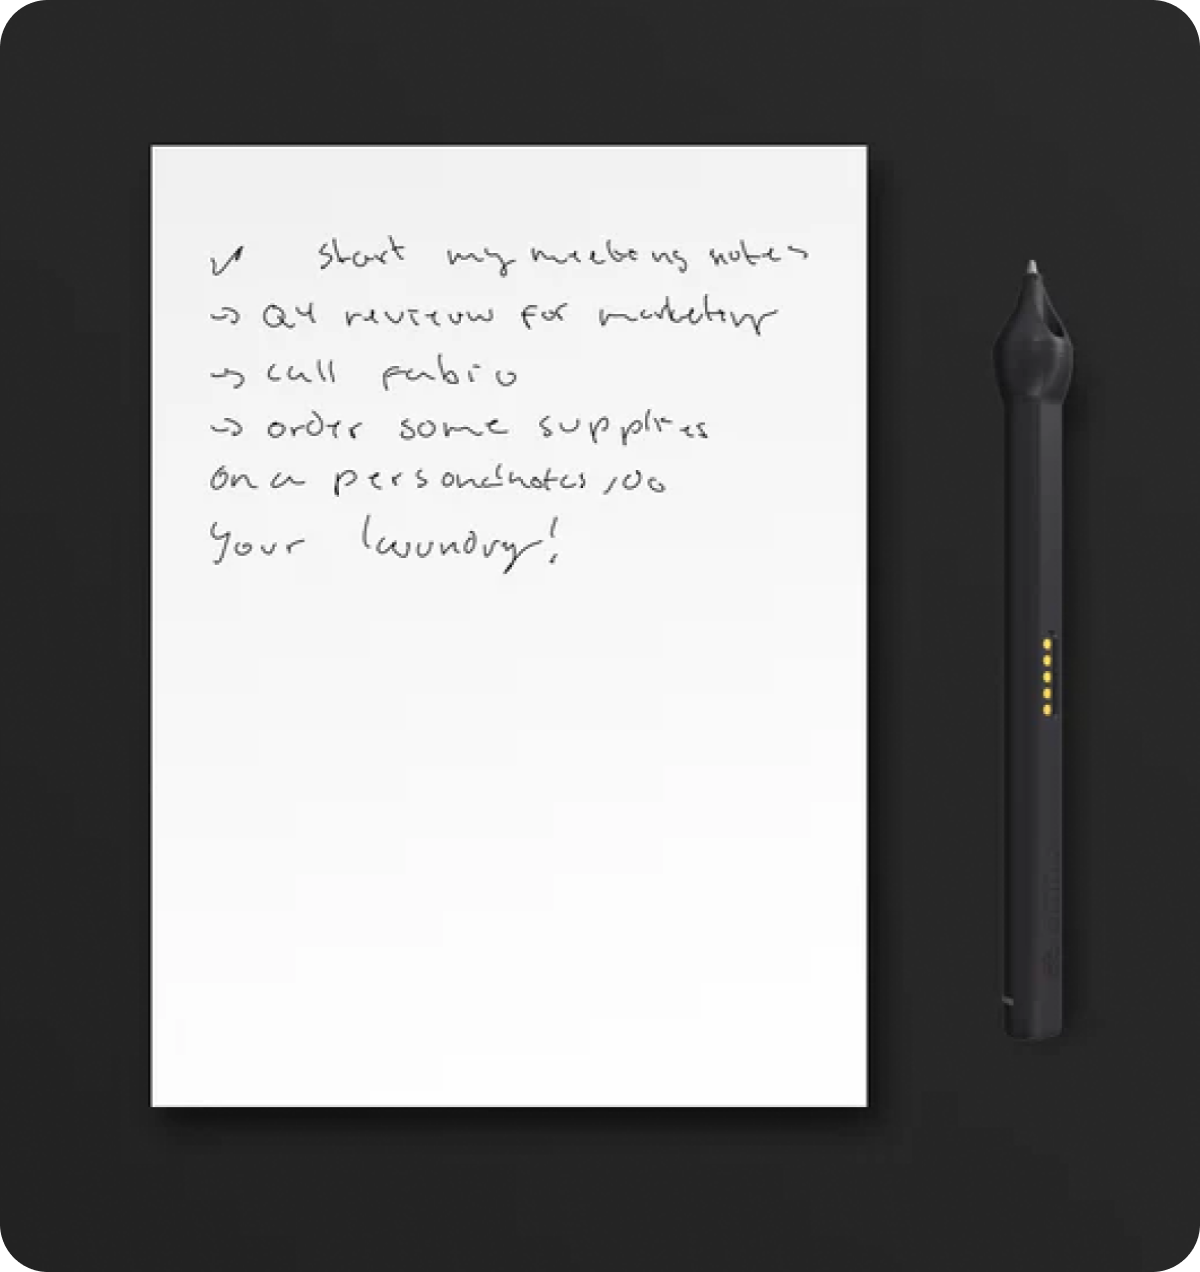 ✓ start my meeting notes
→ Q4 review for marketing
→ call fabio
→ order some supplies
On a personal notes, do
your laundry!